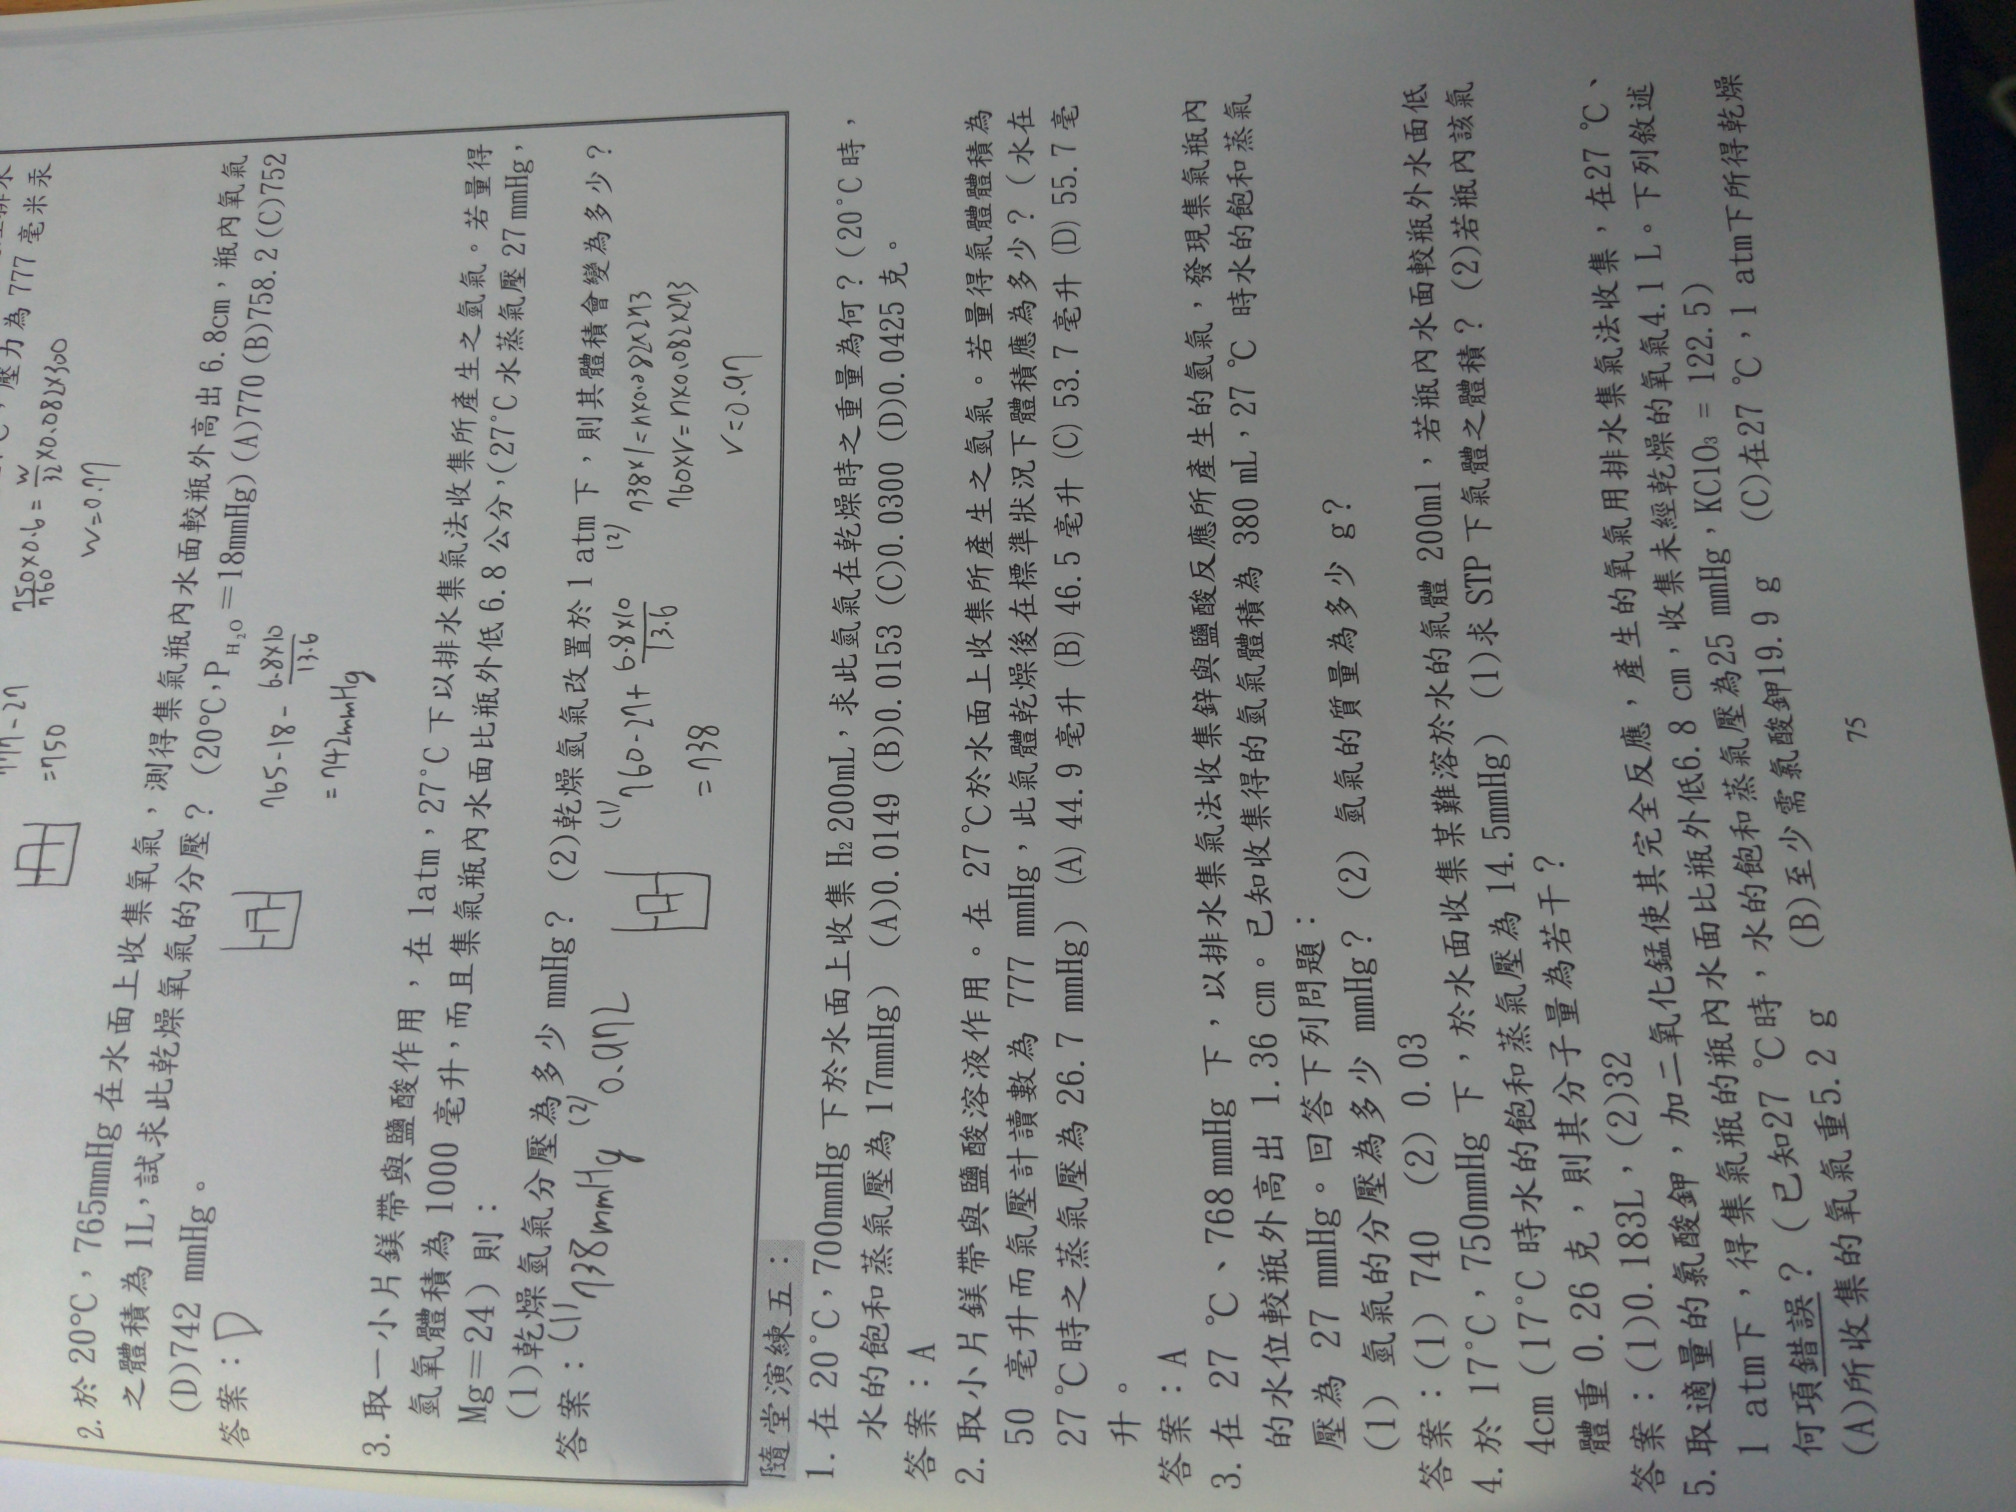 壓力為 777 毫米汞
=750
750/760×0.6 = w/32×0.082×300
w=0.77
2. 於 20℃，765mmHg 在水面上收集氧氣，測得集氣瓶內水面較瓶外高出 6.8cm，瓶內氧氣
之體積為 1L，試求此乾燥氧氣的分壓？（20℃，P H₂O＝18mmHg）(A)770 (B)758.2 (C)752
(D)742 mmHg。
答案：D
765-18 - 6.8×10/13.6
= 742mmHg
3. 取一小片鎂帶與鹽酸作用，在 1atm，27°C 下以排水集氣法收集所產生之氫氣。若量得
氫氧體積為 1000 毫升，而且集氣瓶內水面比瓶外低 6.8 公分，(27°C 水蒸氣壓 27mmHg，
Mg＝24) 則：
(1)乾燥氫氣分壓為多少 mmHg？ (2)乾燥氫氣改置於 1 atm 下，則其體積會變為多少？
答案：(1) 738mmHg (2) 0.97L
(1) 760-27+ 6.8×10/13.6
= 738
(2) 738×1=n×0.082×273
760×V=n×0.082×273
V=0.97
隨堂演練五：
1. 在 20°C，700mmHg 下於水面上收集 H₂ 200mL，求此氫氣在乾燥時之重量為何？(20°C 時，
水的飽和蒸氣壓為 17mmHg) (A)0.0149 (B)0.0153 (C)0.0300 (D)0.0425 克。
答案：A
2. 取小片鎂帶與鹽酸溶液作用。在 27℃於水面上收集所產生之氫氣。若量得氣體體積為
50 毫升而氣壓計讀數為 777 mmHg，此氣體乾燥後在標準狀況下體積應為多少？(水在
27℃時之蒸氣壓為 26.7 mmHg) (A) 44.9 毫升 (B) 46.5 毫升 (C) 53.7 毫升 (D) 55.7 毫
升。
答案：A
3. 在 27 ℃、768 mmHg 下，以排水集氣法收集鋅與鹽酸反應所產生的氫氣，發現集氣瓶內
的水位較瓶外高出 1.36 cm。已知收集得的氫氣體積為 380 mL，27 ℃ 時水的飽和蒸氣
壓為 27 mmHg。回答下列問題：
(1) 氫氣的分壓為多少 mmHg？ (2) 氫氣的質量為多少 g？
答案：(1) 740 (2) 0.03
4. 於 17°C，750mmHg 下，於水面收集某難溶於水的氣體 200ml，若瓶內水面較瓶外水面低
4cm (17°C 時水的飽和蒸氣壓為 14.5mmHg) (1)求 STP 下氣體之體積？ (2)若瓶內該氣
體重 0.26 克，則其分子量為若干？
答案：(1)0.183L，(2)32
5. 取適量的氯酸鉀，加二氧化錳使其完全反應，產生的氧氣用排水集氣法收集，在27 ℃、
1 atm下，得集氣瓶的瓶內水面比瓶外低6.8 cm，收集未經乾燥的氧氣4.1 L。下列敘述
何項錯誤？(已知27 ℃時，水的飽和蒸氣壓為25 mmHg，KClO₃ = 122.5)
(A)所收集的氧氣重5.2 g (B)至少需氯酸鉀19.9 g (C)在27 ℃，1 atm下所得乾燥
75